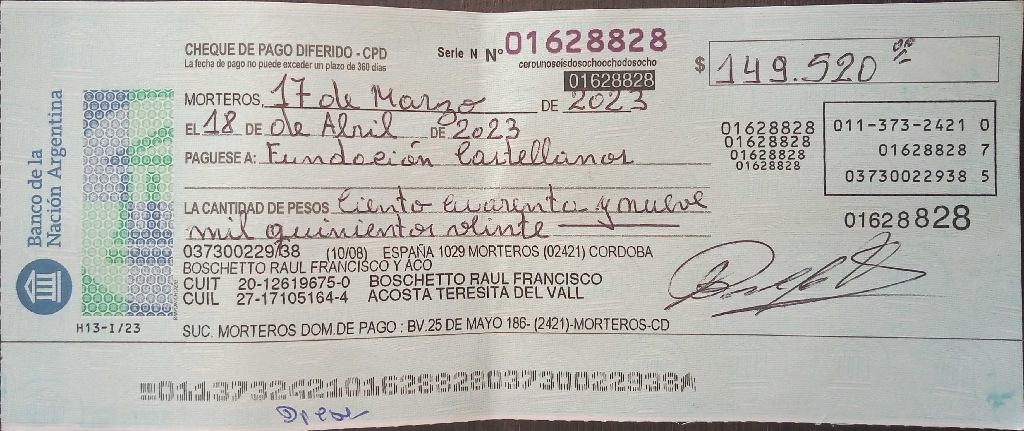 Banco de la
Nación Argentina
CHEQUE DE PAGO DIFERIDO - CPD
La fecha de pago no puede exceder un plazo de 360 días
Serie N Nº 01628828
cerounoseisdosochoochodosocho
01628828
$ 149.520
MORTEROS, 17 de Marzo DE 2023
EL 18 DE de Abril DE 2023
PAGUESE A: Fundación Castellanos
01628828
01628828
01628828
01628828
011-373-2421 0
01628828 7
03730022938 5
01628828
LA CANTIDAD DE PESOS Ciento Cuarenta y nueve
mil quinientos veinte
037300229/38 (10/08) ESPAÑA 1029 MORTEROS (02421) CORDOBA
BOSCHETTO RAUL FRANCISCO Y ACO
CUIT 20-12619675-0 BOSCHETTO RAUL FRANCISCO
CUIL 27-17105164-4 ACOSTA TERESITA DEL VALL
H13-I/23
SUC. MORTEROS DOM.DE PAGO : BV.25 DE MAYO 186- (2421)-MORTEROS-CD
01137324210162882803730022938